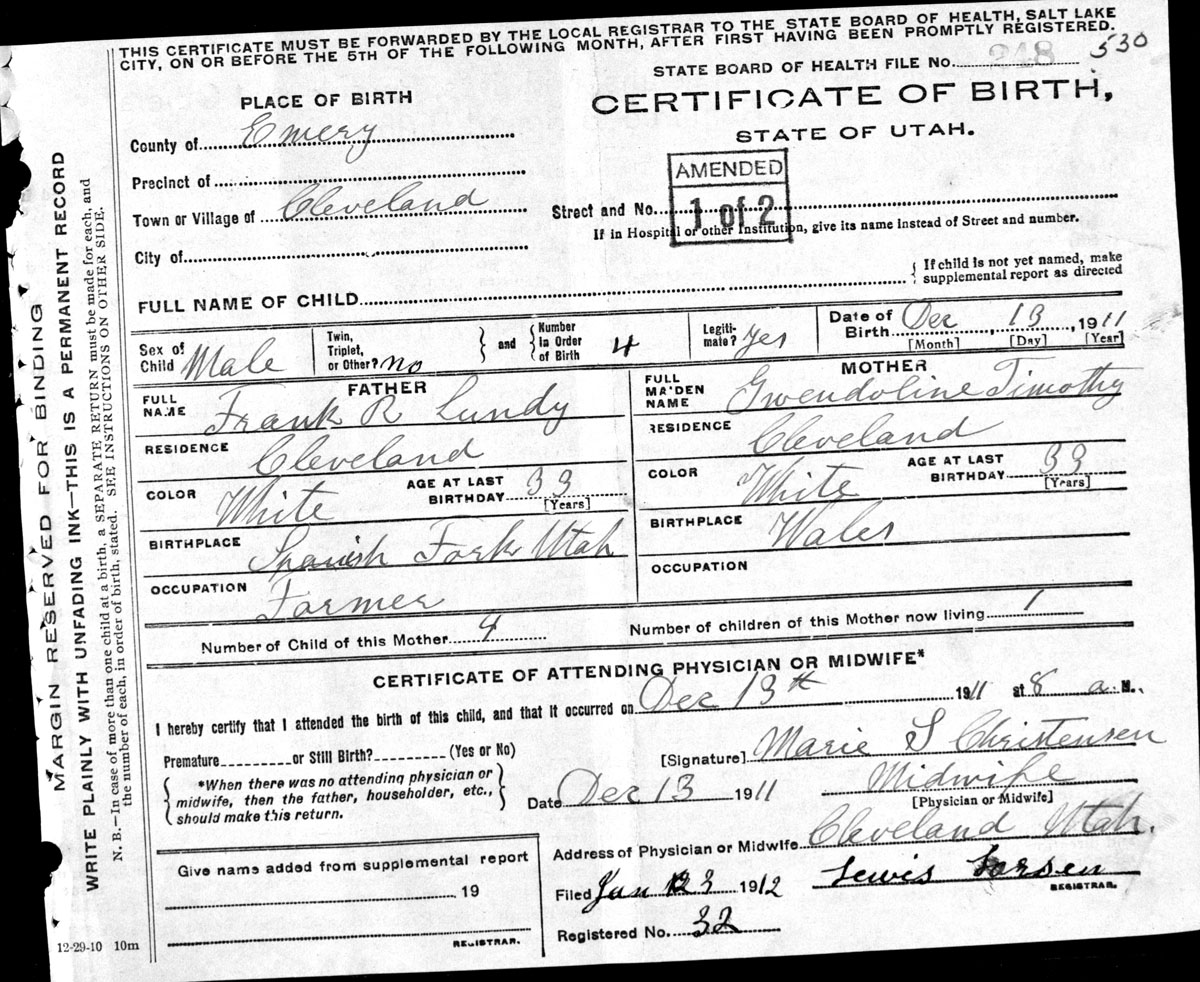 THIS CERTIFICATE MUST BE FORWARDED BY THE LOCAL REGISTRAR TO THE STATE BOARD OF HEALTH, SALT LAKE
CITY, ON OR BEFORE THE 5TH OF THE FOLLOWING MONTH, AFTER FIRST HAVING BEEN PROMPTLY REGISTERED.
STATE BOARD OF HEALTH FILE No. 248 530
PLACE OF BIRTH
CERTIFICATE OF BIRTH,
STATE OF UTAH.
County of Emery
AMENDED
1 of 2
Precinct of
Town or Village of Cleveland
Street and No.
If in Hospital or other Institution, give its name instead of Street and number.
City of
If child is not yet named, make
supplemental report as directed
FULL NAME OF CHILD
Sex of Child Male
Twin, Triplet, or Other? no
and
Number in Order of Birth 4
Legiti-mate? Yes
Date of Birth Dec, 13, 1911
[Month] [Day] [Year]
FATHER
FULL NAME Frank R Lundy
RESIDENCE Cleveland
COLOR White AGE AT LAST BIRTHDAY 33 [Years]
BIRTHPLACE Spanish Fork Utah
OCCUPATION Farmer
MOTHER
FULL MAIDEN NAME Gwendoline Timothy
RESIDENCE Cleveland
COLOR White AGE AT LAST BIRTHDAY 33 [Years]
BIRTHPLACE Wales
OCCUPATION
Number of Child of this Mother 4
Number of children of this Mother now living 1
CERTIFICATE OF ATTENDING PHYSICIAN OR MIDWIFE*
I hereby certify that I attended the birth of this child, and that it occurred on Dec 13th 1911 at 8 a. M.
Premature or Still Birth? (Yes or No)
*When there was no attending physician or
midwife, then the father, householder, etc.,
should make this return.
[Signature] Marie S Christensen
Midwife
[Physician or Midwife]
Date Dec 13 1911
Address of Physician or Midwife Cleveland Utah.
Give name added from supplemental report
19
REGISTRAR.
Filed Jan 23 1912
Lewis Larsen
REGISTRAR.
Registered No. 32
12-29-10 10m
MARGIN RESERVED FOR BINDING
WRITE PLAINLY WITH UNFADING INK—THIS IS A PERMANENT RECORD
N. B.—In case of more than one child at a birth, a SEPARATE RETURN must be made for each, and
the number of each, in order of birth, stated. SEE INSTRUCTIONS ON OTHER SIDE.